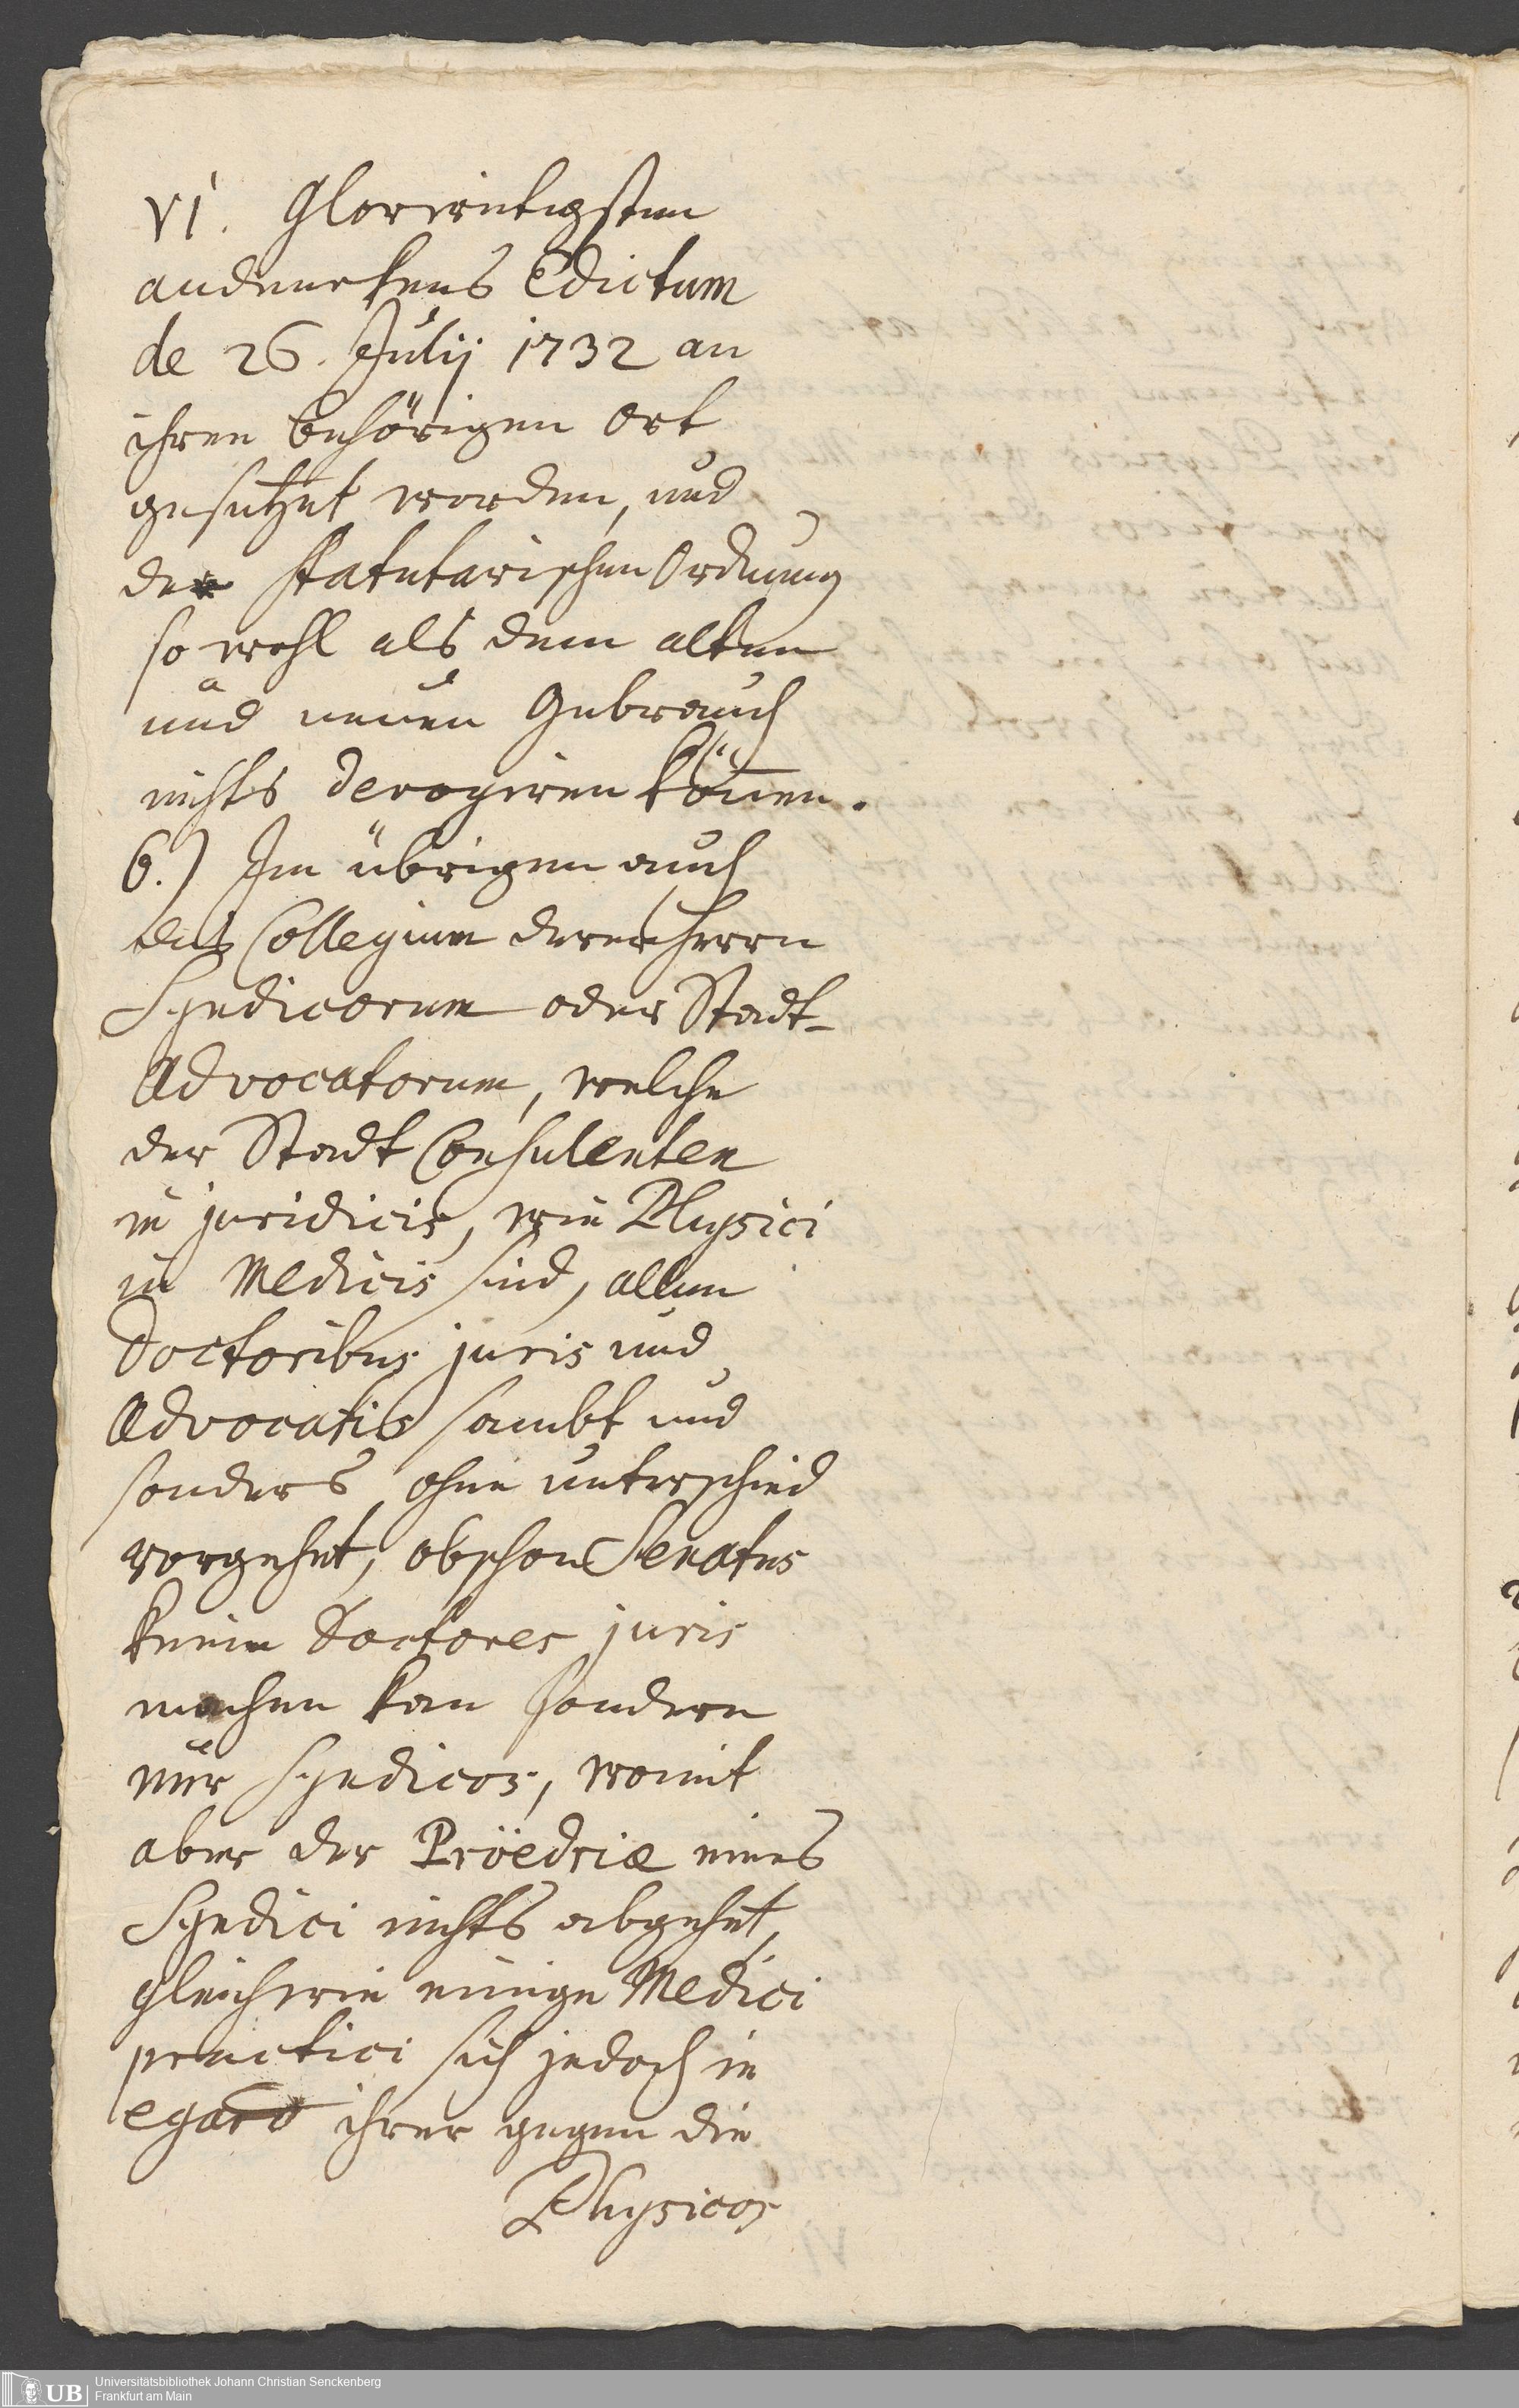 VI. Glorwürdigsten
andenckens Edictum
de 26. Julij 1732 an
ihren behörigen Ort
gesetzet worden, und
der statutarischen Ordnung
so wohl als dem alten
und neuen Gebrauch
nichts derogiren können.
6.) Im übrigen auch
das Collegium derer Herrn
Syndicorum oder Stadt-
Advocatorum, welche
der Stadt Consulenten
in juridicis, wie Physici
in Medicis sind, allen
Doctoribus juris und
Advocatis sambt und
sonders, ohne unterschied
vorgehet, obschon Senatus
keine Doctores juris
machen kan sondern
nur Syndicos, womit
aber der Pröedriæ eines
Syndici nichts abgehet,
gleichwie einige Medici
practici sich jedoch in
egard ihrer gegen die
Physicos
UB
Universitätsbibliothek Johann Christian Senckenberg
Frankfurt am Main